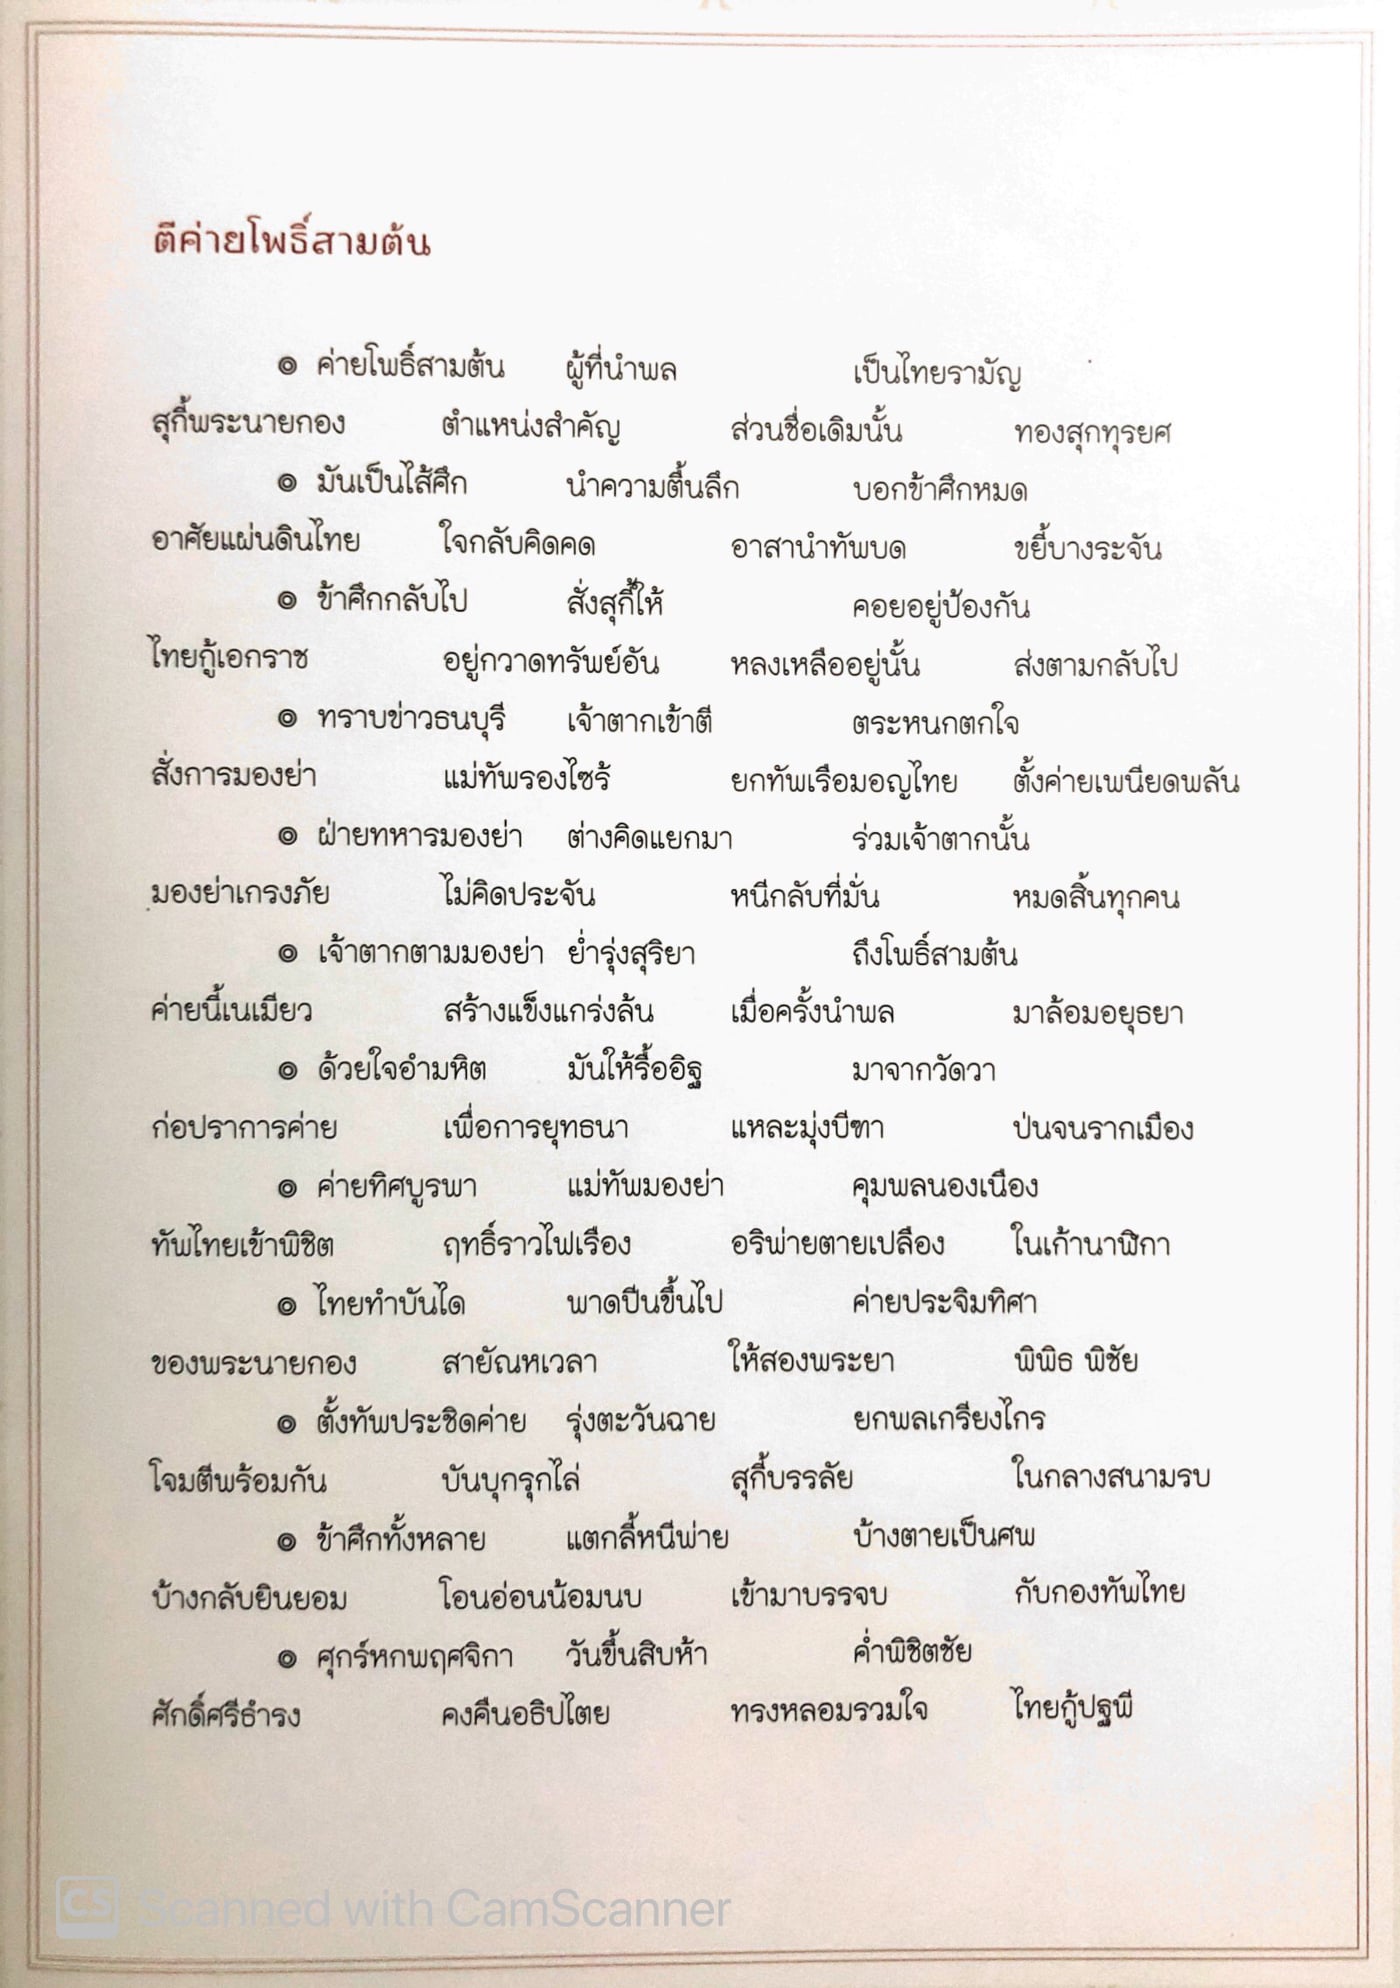 ตีค่ายโพธิ์สามต้น
๏ ค่ายโพธิ์สามต้น ผู้ที่นำพล เป็นไทยรามัญ
สุกี้พระนายกอง ตำแหน่งสำคัญ ส่วนชื่อเดิมนั้น ทองสุกทุรยศ
๏ มันเป็นไส้ศึก นำความตื้นลึก บอกข้าศึกหมด
อาศัยแผ่นดินไทย ใจกลับคิดคด อาสานำทัพบด ขยี้บางระจัน
๏ ข้าศึกกลับไป สั่งสุกี้ให้ คอยอยู่ป้องกัน
ไทยกู้เอกราช อยู่กวาดทรัพย์อัน หลงเหลืออยู่นั้น ส่งตามกลับไป
๏ ทราบข่าวธนบุรี เจ้าตากเข้าตี ตระหนกตกใจ
สั่งการมองย่า แม่ทัพรองไซร้ ยกทัพเรือมอญไทย ตั้งค่ายเพนียดพลัน
๏ ฝ่ายทหารมองย่า ต่างคิดแยกมา ร่วมเจ้าตากนั้น
มองย่าเกรงภัย ไม่คิดประจัน หนีกลับที่มั่น หมดสิ้นทุกคน
๏ เจ้าตากตามมองย่า ย่ำรุ่งสุริยา ถึงโพธิ์สามต้น
ค่ายนี้เนเมียว สร้างแข็งแกร่งล้น เมื่อครั้งนำพล มาล้อมอยุธยา
๏ ด้วยใจอำมหิต มันให้รื้ออิฐ มาจากวัดวา
ก่อปราการค่าย เพื่อการยุทธนา แหละมุ่งบีฑา ป่นจนรากเมือง
๏ ค่ายทิศบูรพา แม่ทัพมองย่า คุมพลนองเนือง
ทัพไทยเข้าพิชิต ฤทธิ์ราวไฟเรือง อริพ่ายตายเปลือง ในเก้านาฬิกา
๏ ไทยทำบันได พาดปีนขึ้นไป ค่ายประจิมทิศา
ของพระนายกอง สายัณหเวลา ให้สองพระยา พิพิธ พิชัย
๏ ตั้งทัพประชิดค่าย รุ่งตะวันฉาย ยกพลเกรียงไกร
โจมตีพร้อมกัน บันบุกรุกไล่ สุกี้บรรลัย ในกลางสนามรบ
๏ ข้าศึกทั้งหลาย แตกลี้หนีพ่าย บ้างตายเป็นศพ
บ้างกลับยินยอม โอนอ่อนน้อมนบ เข้ามาบรรจบ กับกองทัพไทย
๏ ศุกร์หกพฤศจิกา วันขึ้นสิบห้า ค่ำพิชิตชัย
ศักดิ์ศรีธำรง คงคืนอธิปไตย ทรงหลอมรวมใจ ไทยกู้ปฐพี
CS Scanned with CamScanner